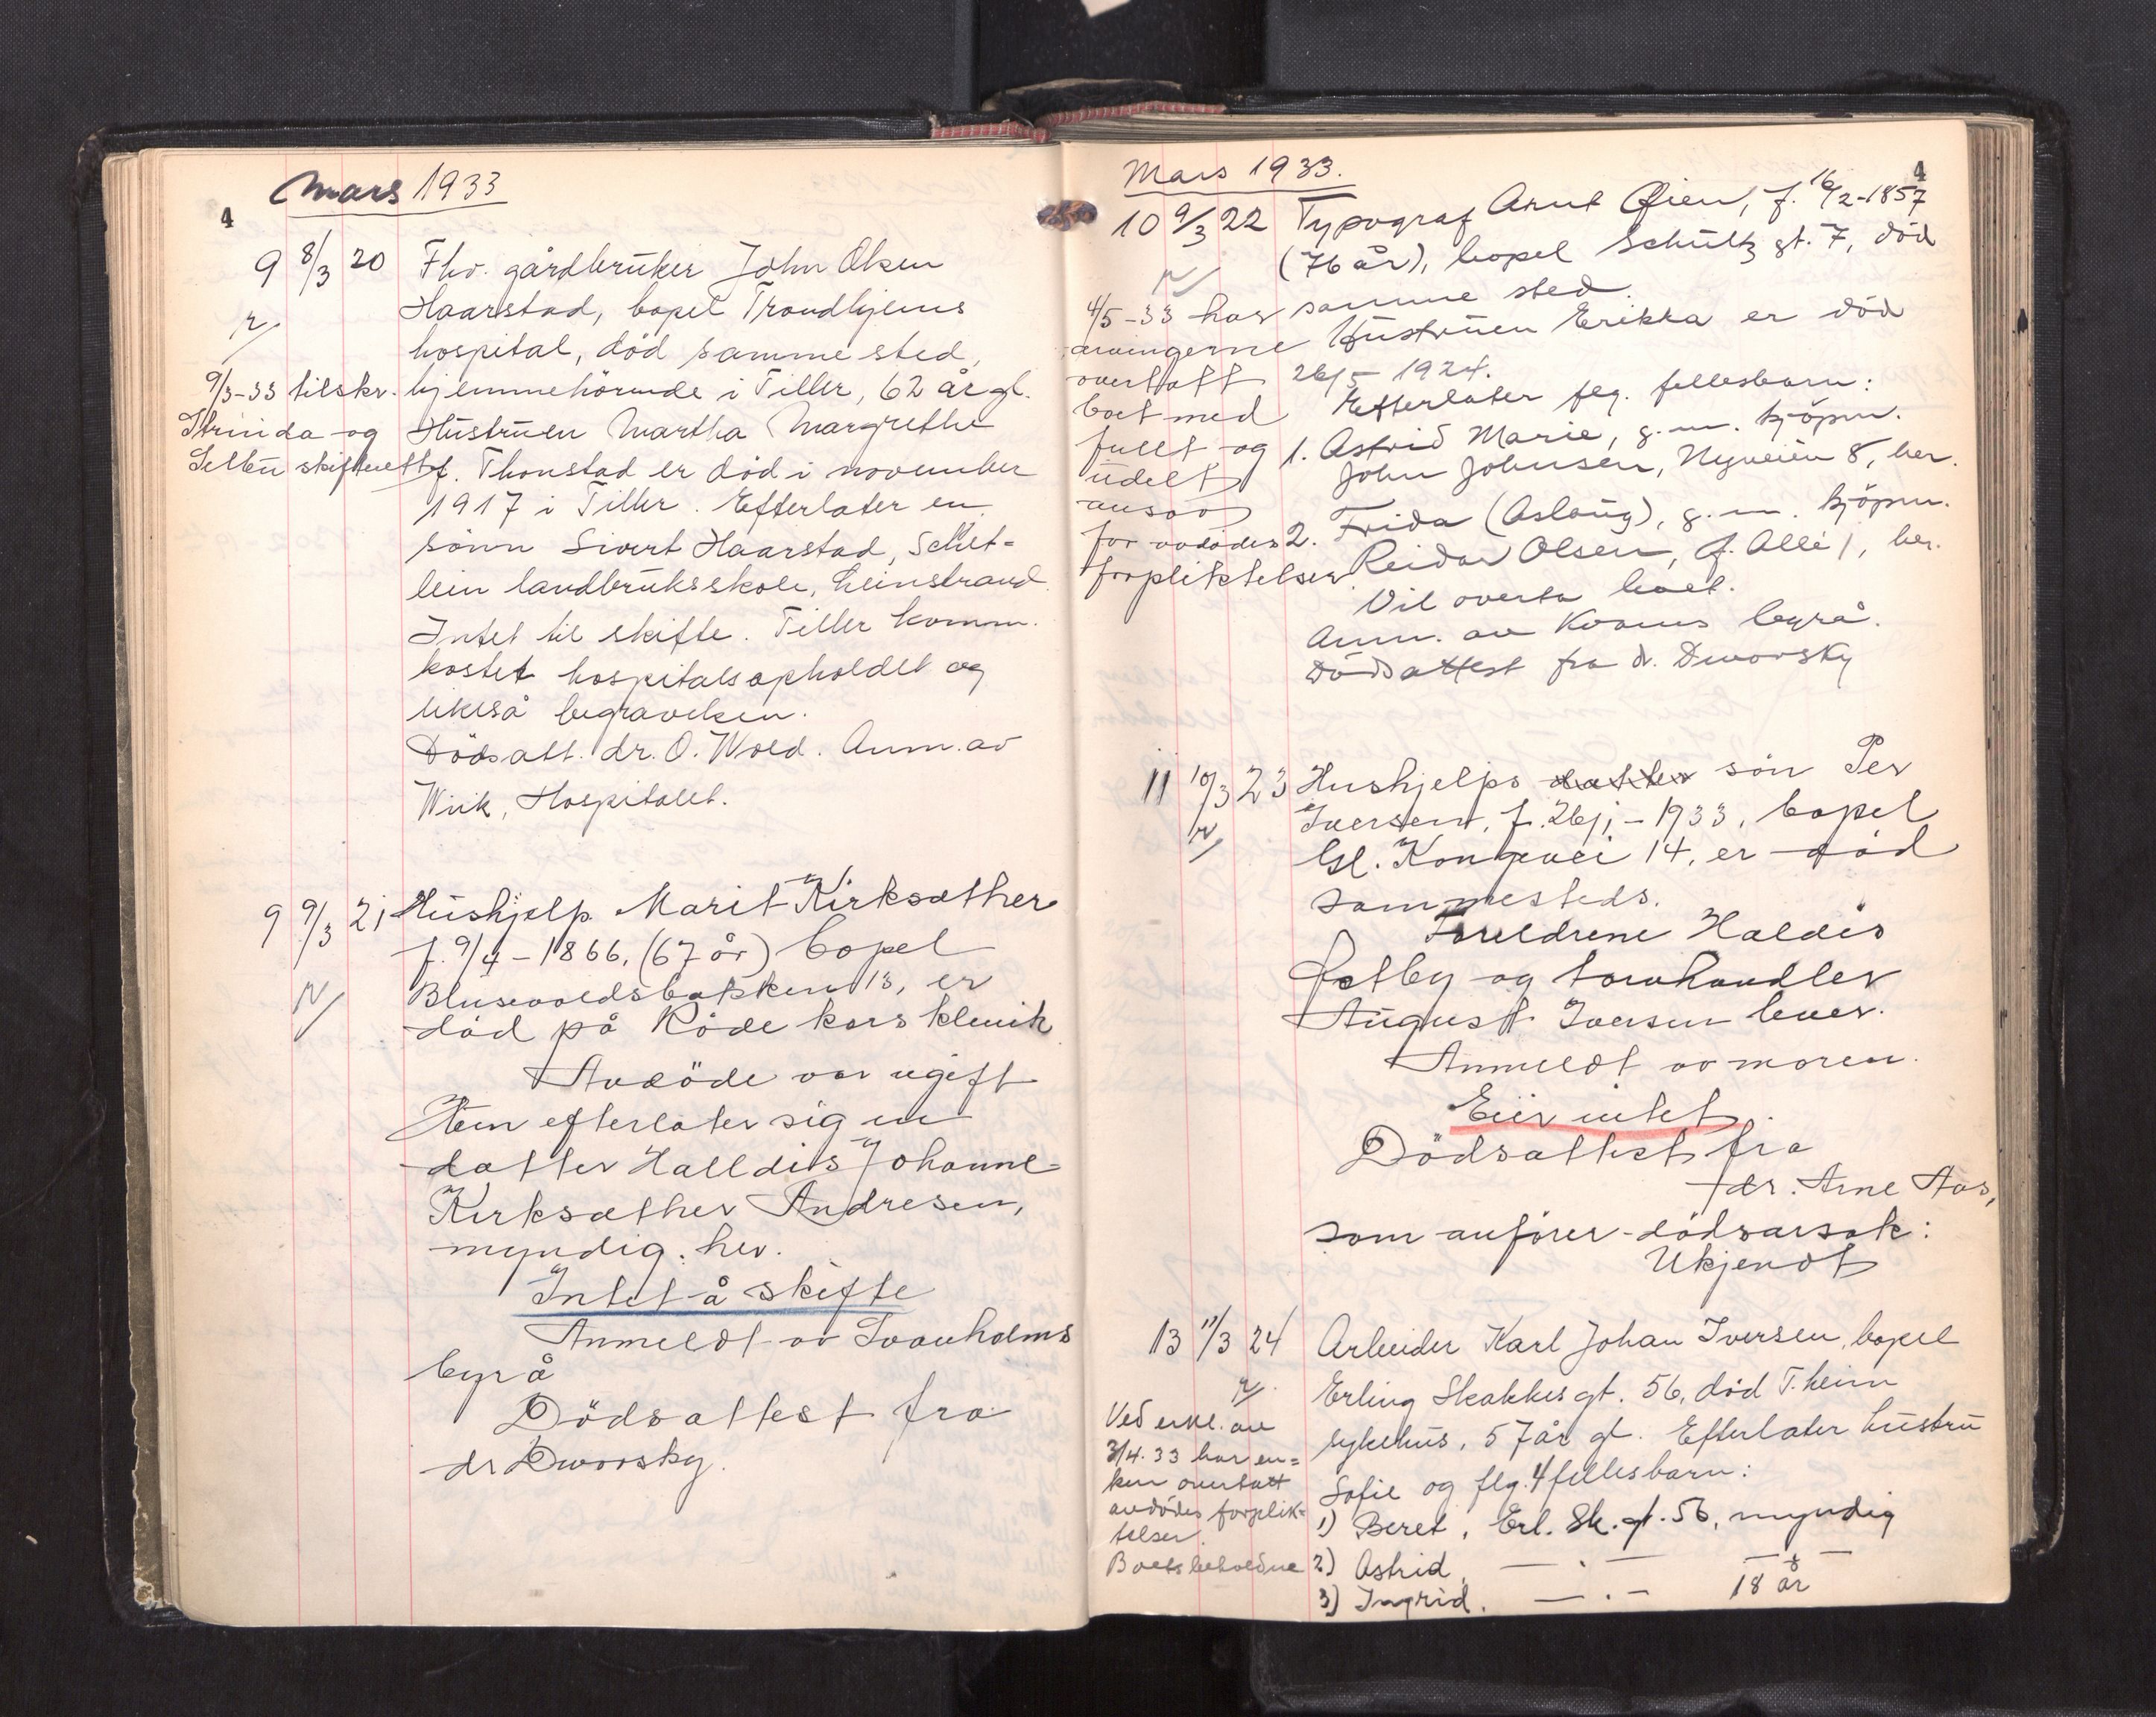 Mars 1933
4
9 8/3 20 Fhv. gårdbruker John Olsen
Haarstad, bopel Trondhjems
hospital, död samme sted,
9/3-33 tilskr. hjemmehörende i Tiller, 62 år gl.
Strinda og Hustruen Martha Margrethe
Selbu skifterett f. Thonstad er död i november
1917 i Tiller. Efterlater en
sönn Sivert Haarstad,
lein landbruksskole, Leinstrand.
Intet til skifte. Tiller komm.
kostet hospitalsopholdet og
likeså begravelsen.
Dödsatt. dr. O. Wold. Anm. av
Wiik, Hospitalet.
9 9/3 21 Hushjelp Marit Kirksæther
f. 9/4-1866, (67 år) bopel
bakken 13, er
död på Röde kors klinik
Avdöde var ugift
Hun efterlater sig en
datter Halldis Johanne
Kirksæther Andresen,
myndig, her.
Intet å skifte
Anmeldt av Svanholms
byrå
Dödsattest fra
dr Dworsky.
Mars 1933.
4
10 9/3 22 Typograf Arnt Öien, f. 16/2-1857
(76 år), bopel Schultz gt. 7, död
samme sted.
4/5-33 har
arvingerne Hustruen Erikka er död
overtatt 26/5-1924.
boet med Efterlater flg. fellesbarn:
fullt og 1. Astrid Marie, g.m. kjöpm.
udelt John Johnsen, Nyveien 8, her.
ansvar
for avdödes 2. Frida (Aslaug), g.m. kjöpm.
forpliktelser. Reidar Olsen, Alle 1, her.
Vil overta boet.
Anm. av Kvams byrå.
Dödsattest fra dr. Dworsky
11 10/3 23 Hushjelps datter sön Per
Iversen, f. 26/1-1933, bopel
Gl. Kongevei 14, er död
sammesteds.
Foreldrene Haldis
og
August Iversen lever.
Anmeldt av moren.
Eier intet.
Dödsattest fra
dr. Arne Aas,
som anförer dödsarsak:
Ukjendt
13 11/3 24 Arbeider Karl Johan Iversen, bopel
Erling Skakkes gt. 56, död T.heim
Ved erkl. av
3/4.33 har en= sykehus, 57 år gl. Efterlater hustru
ken overtatt Sofie og flg. 4 fellesbarn:
avdödes forplik=
telser. 1) Beret, Erl. Sk. gt. 56, myndig
Boets beholdne 2) Astrid, — . — — " —
3) Ingrid. — . — 18 år